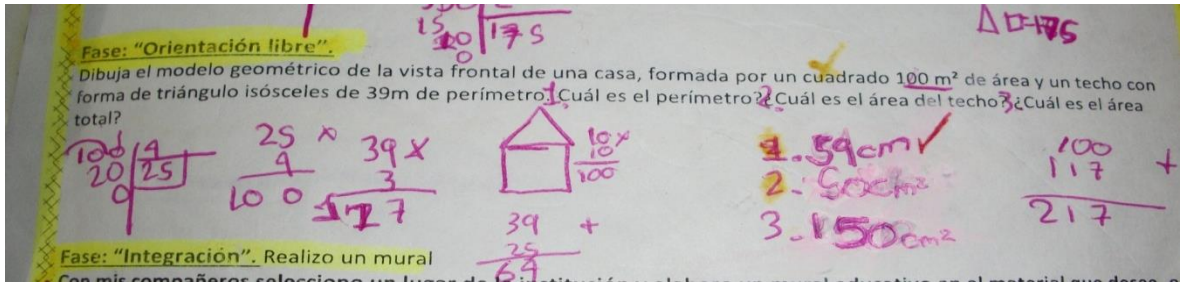 15
20 | 175
0
Δ□=175
Fase: “Orientación libre”.
Dibuja el modelo geométrico de la vista frontal de una casa, formada por un cuadrado 100 m² de área y un techo con
forma de triángulo isósceles de 39m de perímetro. 1 ¿Cuál es el perímetro? 2 ¿Cuál es el área del techo? 3 ¿Cuál es el área
total?
100 | 4
20 | 25
0
25 x
4
100
39 x
3
117
10 x
10
100
39 +
25
64
1. 59cm ✓
2. 50cm²
3. 150cm²
100 +
117
217
Fase: “Integración”. Realizo un mural